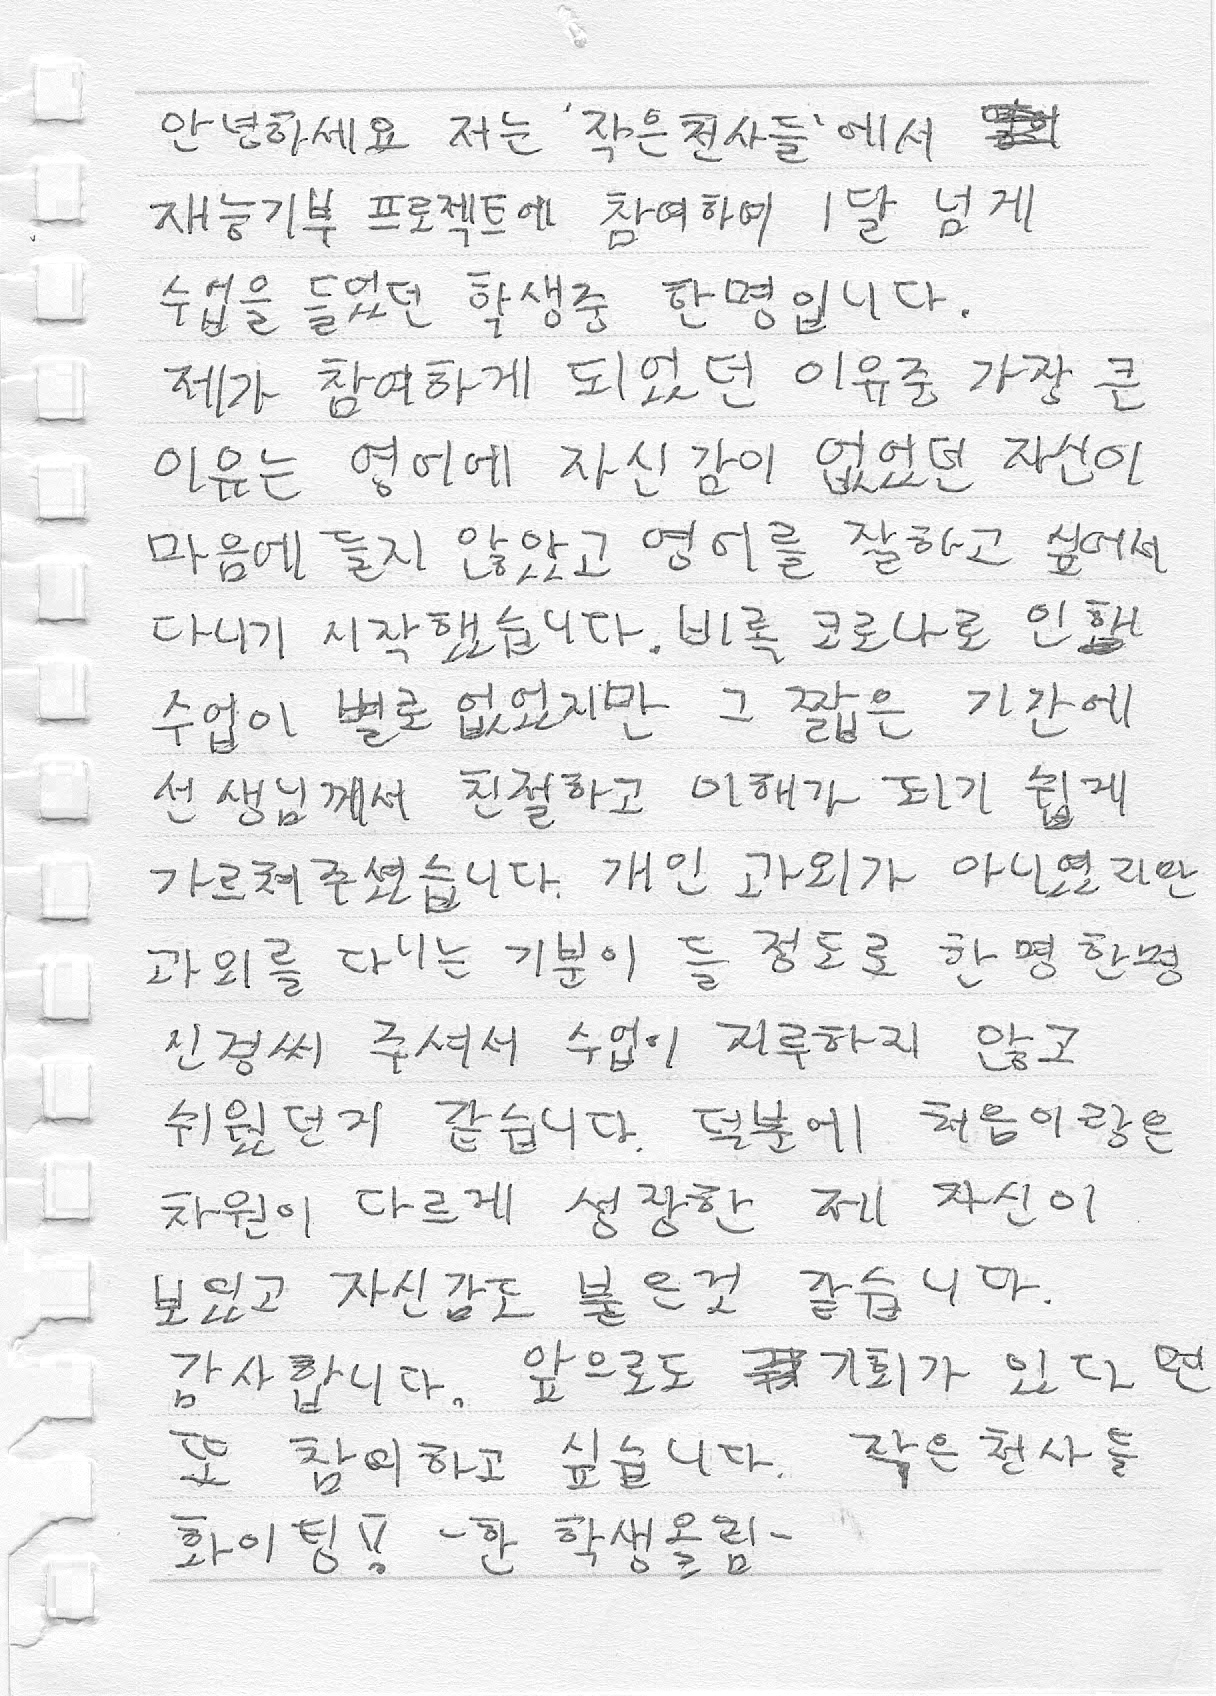 안녕하세요 저는 '작은천사들'에서
재능기부 프로젝트에 참여하여 1달 넘게
수업을 들었던 학생중 한명입니다.
제가 참여하게 되었던 이유중 가장 큰
이유는 영어에 자신감이 없었던 자신이
마음에 들지 않았고 영어를 잘하고 싶어서
다니기 시작했습니다. 비록 코로나로 인해
수업이 별로 없었지만 그 짧은 기간에
선생님께서 친절하고 이해가 되기 쉽게
가르쳐주셨습니다. 개인 과외가 아니였지만
과외를 다니는 기분이 들 정도로 한명한명
신경써 주셔서 수업이 지루하지 않고
쉬웠던거 같습니다. 덕분에 처음이랑은
차원이 다르게 성장한 제 자신이
보였고 자신감도 붙은것 같습니다.
감사합니다. 앞으로도 기회가 있다면
또 참여하고 싶습니다. 작은천사들
화이팅!! -한 학생올림-